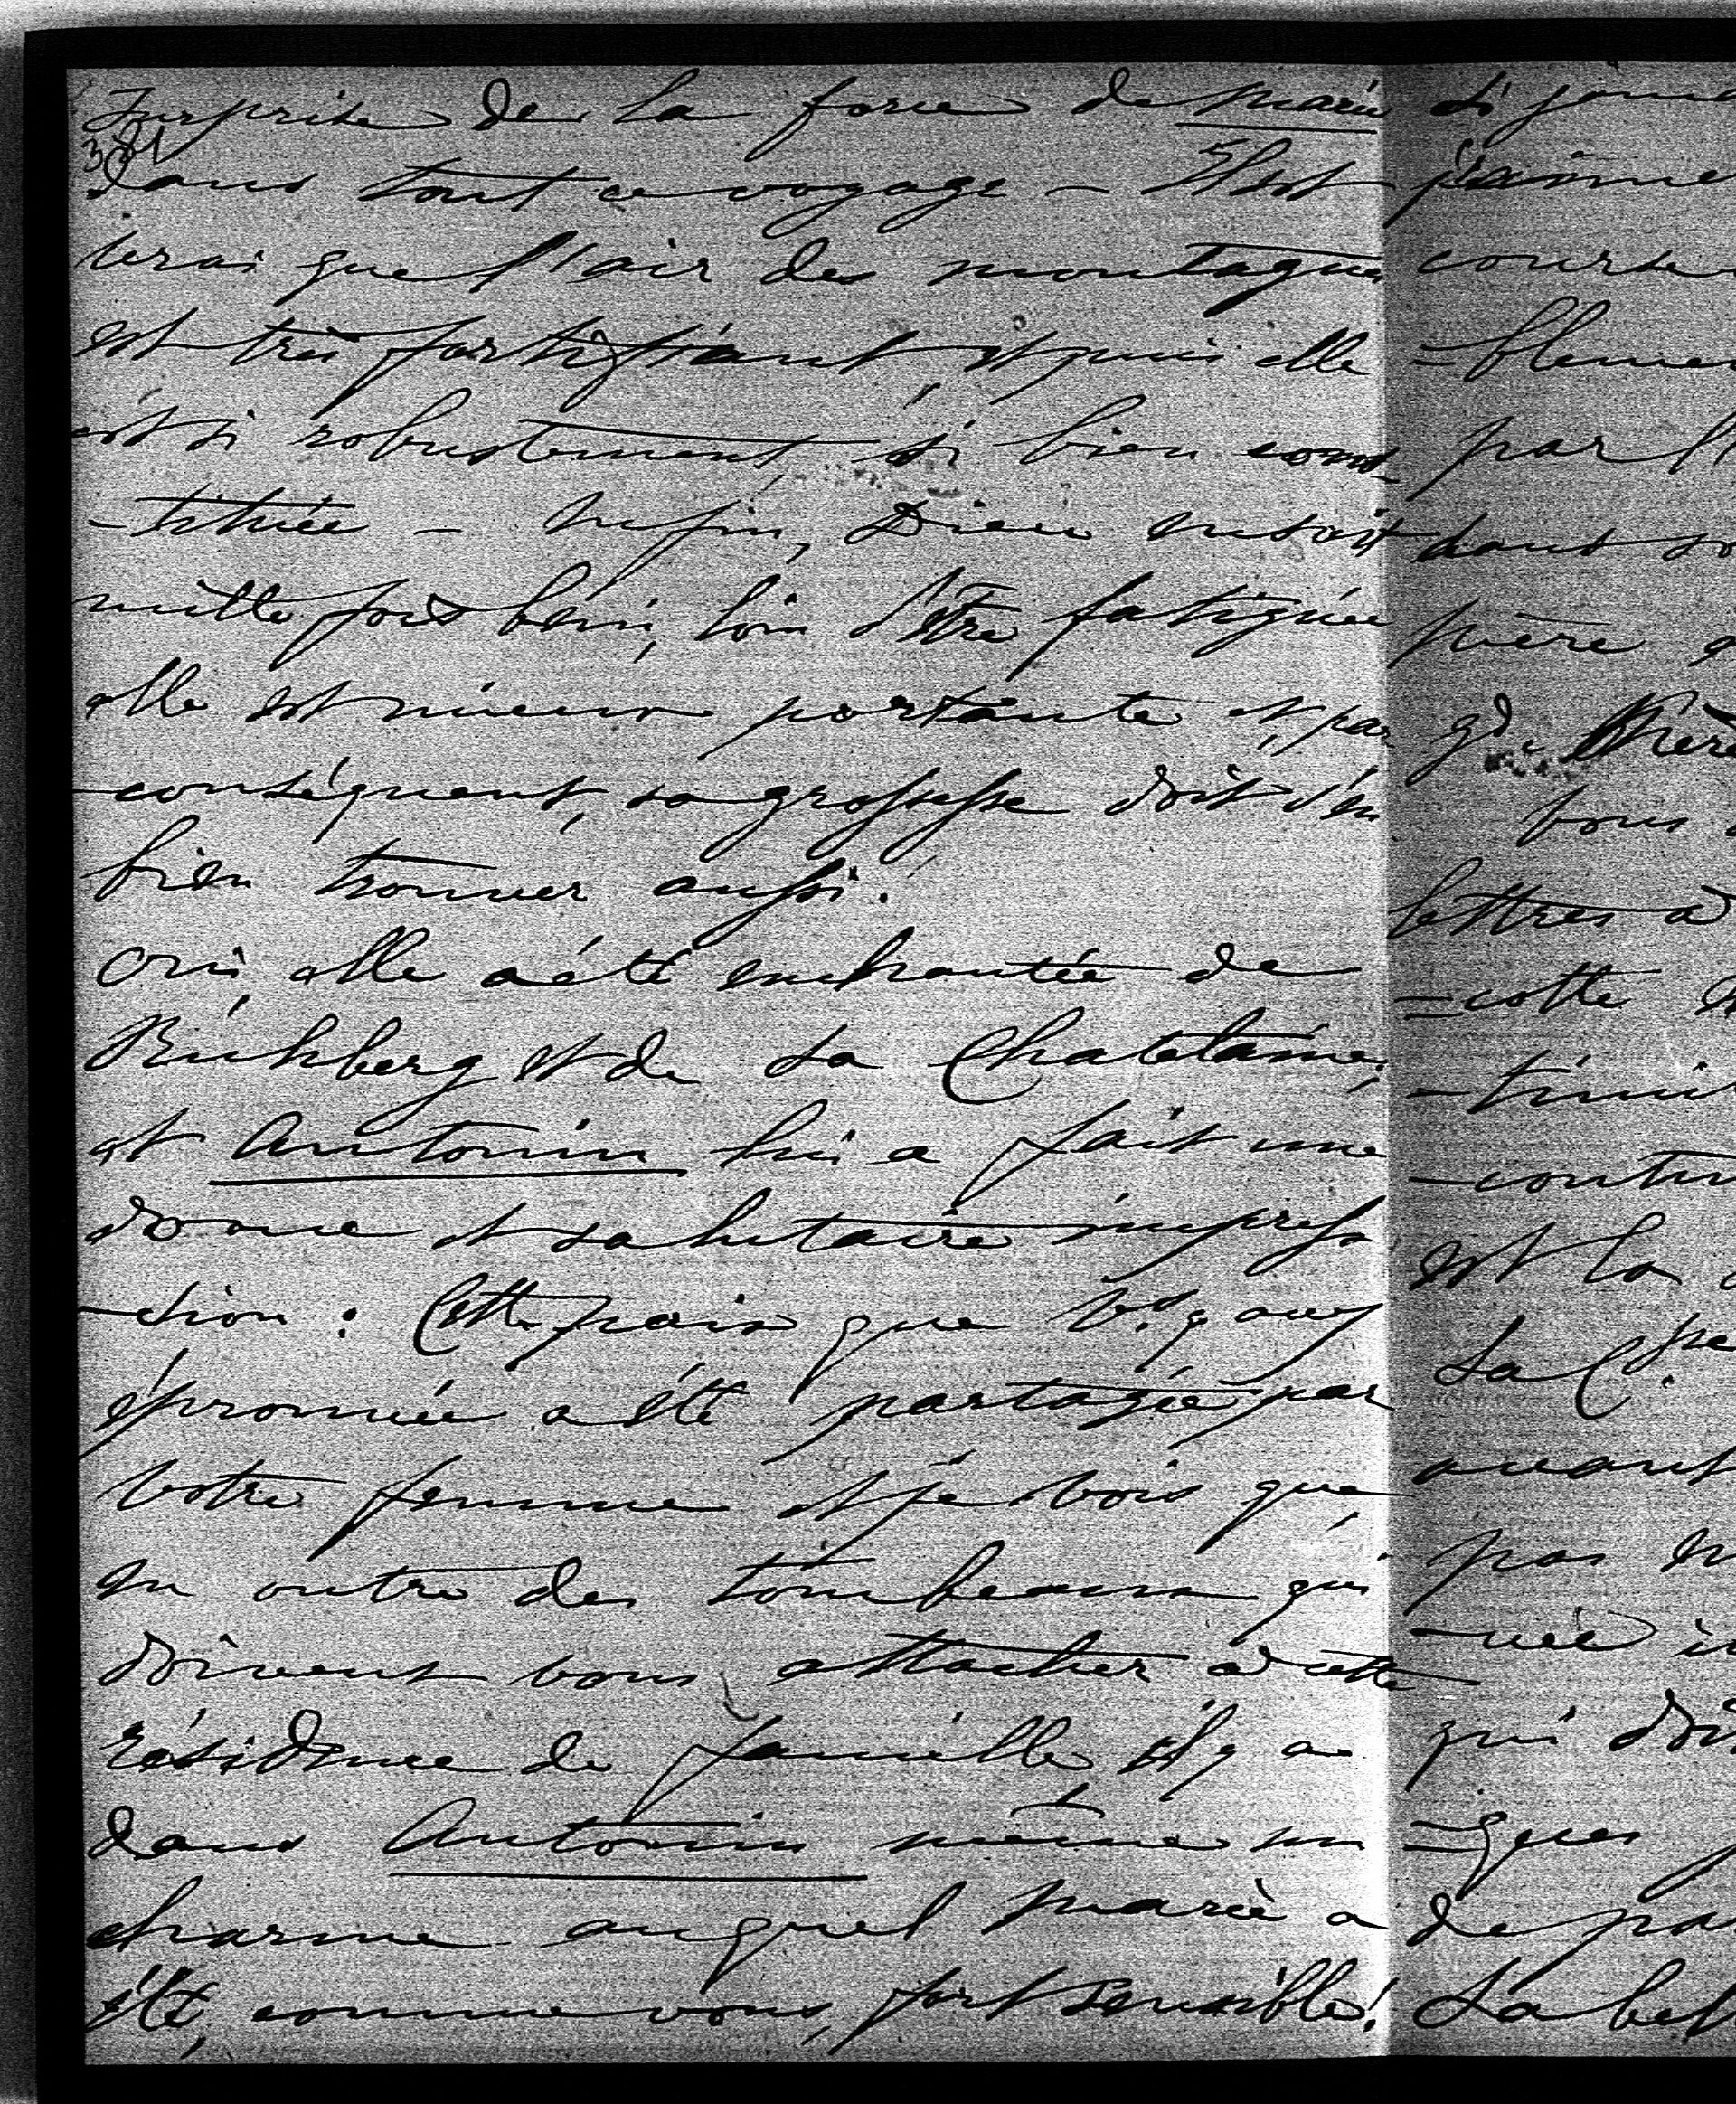 surprise de la force de Marie
381
dans tout ce voyage – Il est
vrai que l'air des montagnes
est très fortifiant et puis elle
est si robustement si bien cons
-tituée – enfin, Dieu en soit
mille fois béni, loin d'être fatiguée
elle est mieux portante et, par
conséquent, sa grossesse doit s'en
bien trouver aussi.
Oui, elle a été enchantée de
et de sa Chatelaine,
et Antonin lui a fait une
douce et salutaire impres
-sion : Cette paix que v.s y avez
éprouvée a été partagée par
votre femme et je vois que,
en outre des tombeaux qui
doivent vous attacher à cette
résidence de famille il y a
dans Antonin même un
charme auquel Marie a
été, comme vous, fort sensible!
si jama
j'aime
course
-bleme
par l'
dans so
père
gd. Père
vous
lettres à
=cotte
-tinui
-contin
est la
La C.sse
avant
pas
-née
qui doi
=ques
de pa
La bel